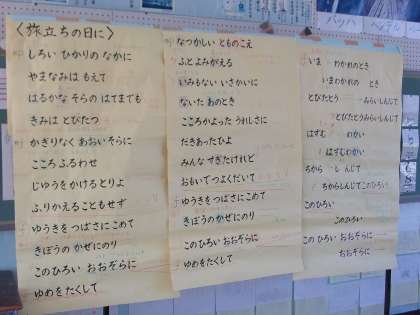 〈旅立ちの日に〉
しろい ひかりの なかに
やまなみは もえて
はるかな そらの はてまでも
きみは とびたつ
かぎりなく あおい そらに
こころ ふるわせ
じゆうを かける とりよ
ふりかえる こともせず
ゆうきを つばさに こめて
きぼうの かぜにのり
このひろい おおぞらに
ゆめを たくして
なつかしい とものこえ
ふと よみがえる
いみもない いさかいに
ないた あのとき
こころかよった うれしさに
だきあったひよ
みんな すぎたけれど
おもいでつよく だいて
ゆうきを つばさに こめて
きぼうの かぜにのり
このひろい おおぞらに
ゆめを たくして
いま わかれのとき
いまわかれの とき
とびたとう みらいしんじて
とびたとうみらいしんじて
はずむ わかい
はずむわかい
ちから しんじて
ちからしんじてこのひろい
このひろい
このひろい
このひろい おおぞらに
おおぞらに
バッハ